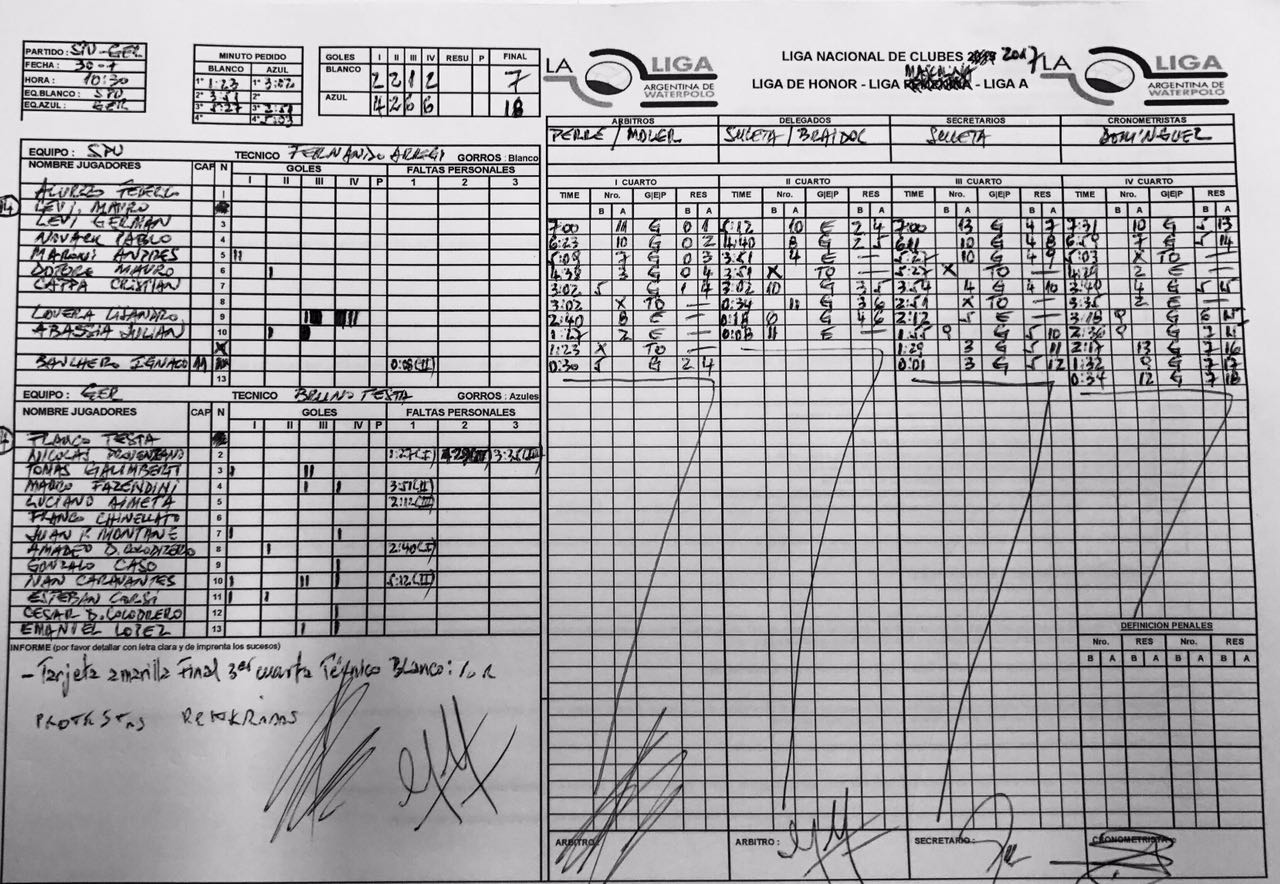 PARTIDO : SPU-GER
FECHA : 30-1
HORA : 10:30
EQ.BLANCO : SPU
EQ.AZUL : GER
MINUTO PEDIDO
BLANCO AZUL
1° 1:23 1° 3:02
2° 3:51 2°
3° 5:27 3° 2:51
4° 4° 5:03
GOLES I II III IV RESU P FINAL
BLANCO 2 2 1 2 7
AZUL 4 2 6 6 18
LA LIGA
ARGENTINA DE
WATERPOLO
LIGA NACIONAL DE CLUBES 2017
LIGA DE HONOR - LIGA MASCULINA - LIGA A
LA LIGA
ARGENTINA DE
WATERPOLO
ARBITROS DELEGADOS SECRETARIOS CRONOMETRISTAS
PERRE / MOLER SULETA / BRAIDOC SULETA DOMINGUEZ
EQUIPO : SPU TECNICO FERNANDO ARREGI GORROS : Blanco
NOMBRE JUGADORES CAP N GOLES FALTAS PERSONALES
I II III IV P 1 2 3
1
14 LEVI, MAURO
LEVI GERMAN 3
NOVACK PABLO 4
MARONI ANDRES 5
DOTORE MAURO 6
CAPPA CRISTIAN 7
8
LOVERA LISANDRO 9
ABASSIA JULIAN 10
BANCHERO IGNACIO 11 0:08(II)
13
EQUIPO : GER TECNICO BRUNO TESTA GORROS : Azules
NOMBRE JUGADORES CAP N GOLES FALTAS PERSONALES
I II III IV P 1 2 3
FRANCO TESTA
NICOLAS 2 1:27(I) 3:35
TOMAS GALIMBERTI 3
MAURO FAZENDINI 4 3:51(II)
LUCIANO AIMETA 5 2:12(III)
FRANCO CHINELLATO 6
JUAN P. MONTANE 7
AMADEO B. COLODRERO 8 2:40(I)
GONZALO CASO 9
IVAN CARAVANTES 10 5:12(II)
ESTEBAN CORSI 11
CESAR B. COLODRERO 12
EMANUEL LOPEZ 13
INFORME (por favor detallar con letra clara y de imprenta los sucesos)
- Tarjeta amarilla Final 3er cuarto Técnico Blanco: POR
PROTESTAS REITERADAS
I CUARTO
TIME Nro. G|E|P RES
B A B A
7:00 11 G 0 1
6:23 10 G 0 2
5:09 7 G 0 3
4:38 3 G 0 4
3:02 5 G 1 4
3:02 X TO —
2:40 8 E —
1:27 2 E —
1:23 X TO —
0:30 5 G 2 4
II CUARTO
TIME Nro. G|E|P RES
B A B A
5:12 10 E 2 4
4:40 8 G 2 5
3:51 4 E
3:51 X TO —
3:02 10 G 3 5
0:34 11 G 3 6
0:18 6 G 4 6
0:08 11 E —
III CUARTO
TIME Nro. G|E|P RES
B A B A
7:00 13 G 4 7
6:11 10 G 4 8
5:27 10 G 4 9
5:27 X TO —
3:54 4 G 4 10
2:51 X TO —
2:12 5 E —
1:55 9 G 5 10
1:29 3 G 5 11
0:01 3 G 5 12
IV CUARTO
TIME Nro. G|E|P RES
B A B A
7:31 10 G 5 13
6:59 7 G 5 14
5:03 X TO —
4:29 2 E —
3:40 4 G 5 15
3:35 2 E —
3:18 9 G 6 15
2:36 9 G 7 15
2:17 13 G 7 16
1:32 9 G 7 17
0:34 12 G 7 18
DEFINICION PENALES
Nro. RES Nro. RES
B A B A B A B A
ARBITRO : ARBITRO : SECRETARIO : CRONOMETRISTA :